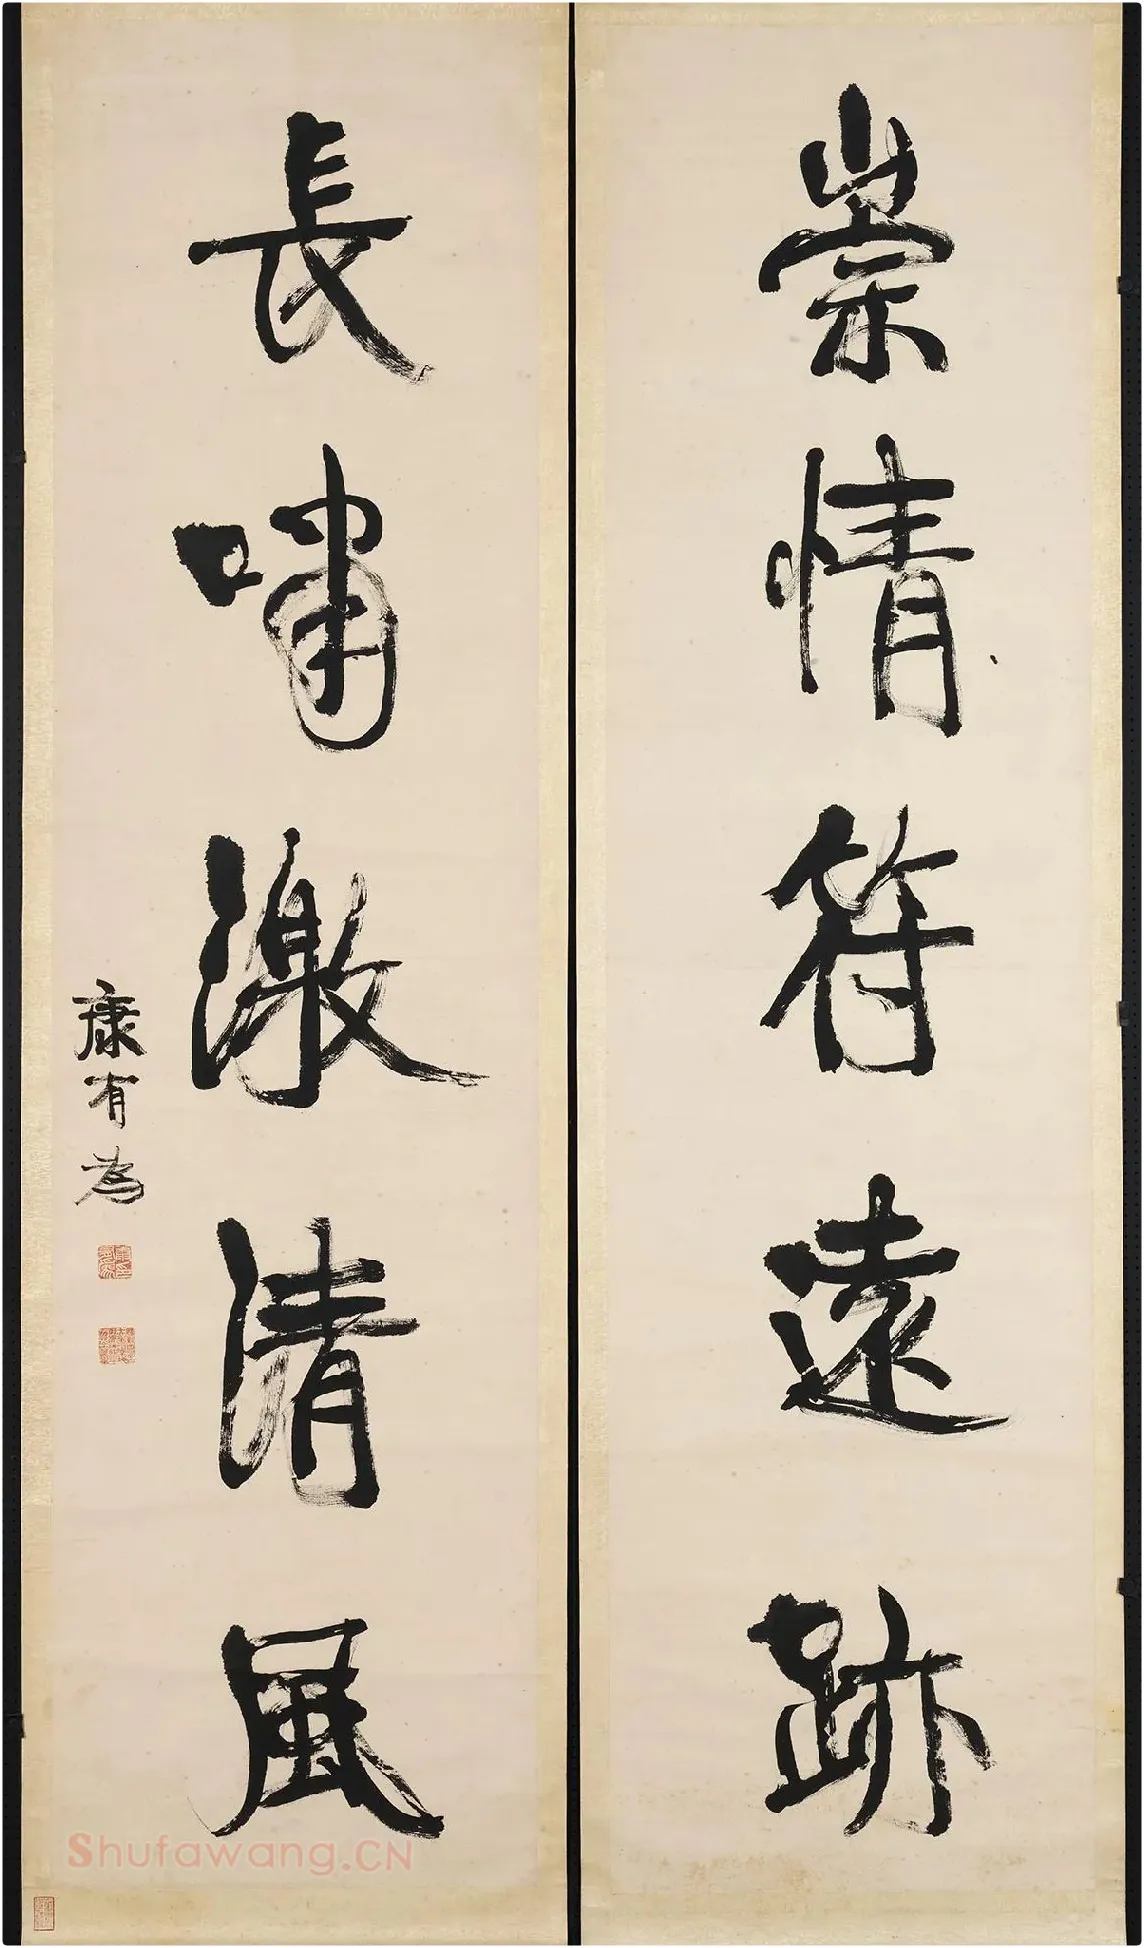 崇情符遠跡
長嘯激清風
康有為
Shufawang.CN